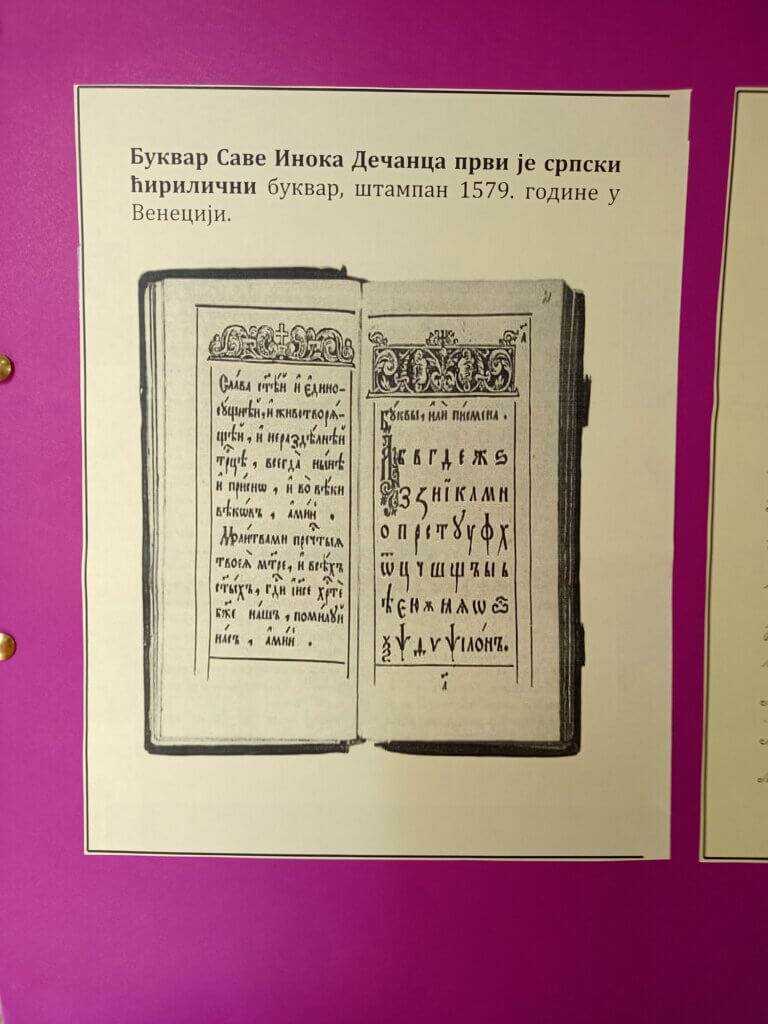 Буквар Саве Инока Дечанца први је српски
ћирилични буквар, штампан 1579. године у
Венецији.
Сла́ва ст҃ѣ́й и҆ є҆дино-
сꙋ́щнѣй, и҆ животворѧ́-
щей, и҆ нераздѣ́лнѣй
трⷪ҇цѣ, всегда̀ ны́нѣ
и҆ при́снѡ, и҆ во̀ вѣ́ки
вѣкѡ́въ, а҆ми́нь.
Мл҃и́твами пречⷭ҇тыѧ
твоеѧ̀ мт҃ре, и҆ всѣ́хъ
ст҃ы́хъ, гд҃и і҆и҃се хрⷭ҇тѐ
бж҃е на́шъ, поми́лꙋй
на́съ, а҆ми́нь.
Бꙋ́квы, и҆лѝ пи́смена.
А б в г д е ж ѕ
З ꙁ н ї к л м н
о п р с т ꙋ у ф х
ѿ ц ч ш щ ъ ы ь
ѣ є ю ѫ ꙗ ѧ ѡ
ѯ ѱ д ѵ ѱілѡ́нъ.